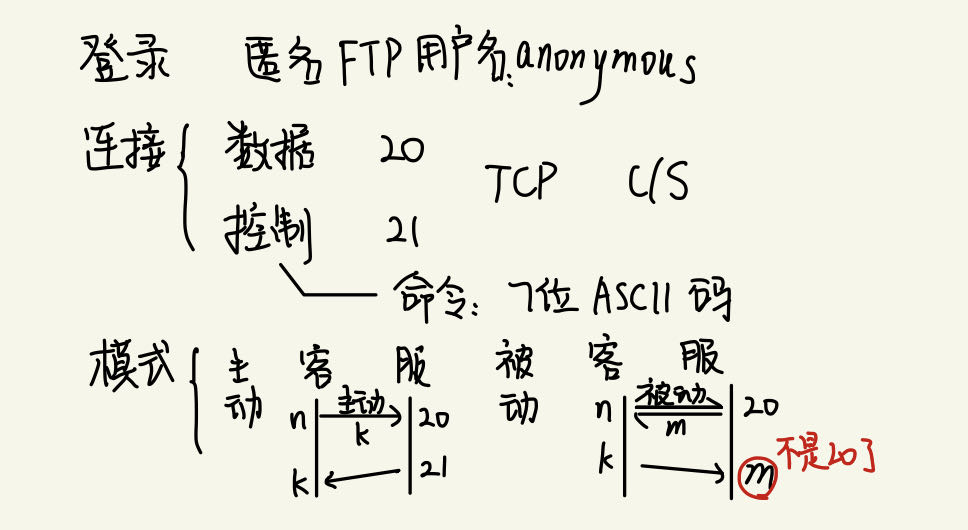 登录 匿名FTP用户名:anonymous
连接 数据 20 TCP C/S
控制 21
命令:7位ASCII码
模式 主动 客 服 被动 客 服
n 主动 k 20 n 被动 m 20
k 21 k m 不是20了